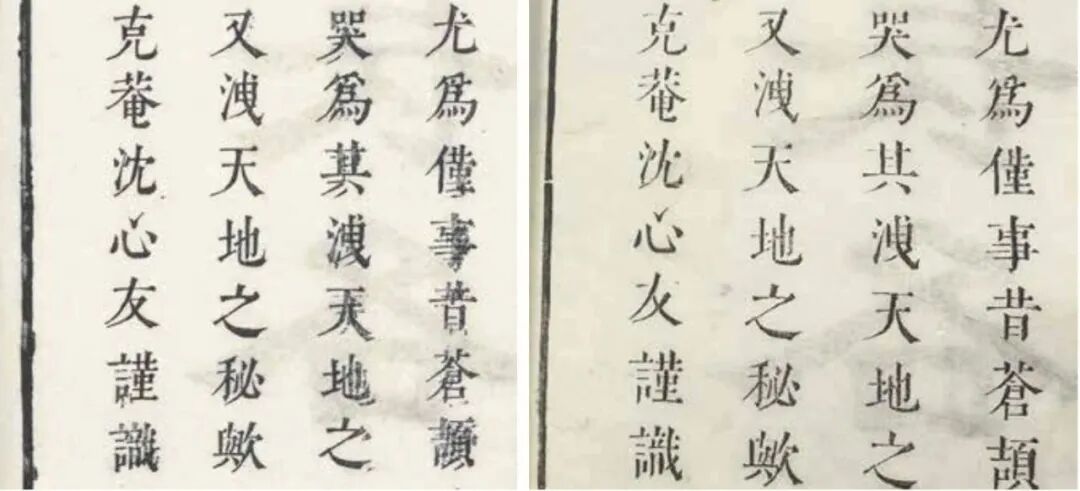 尤爲僅事昔蒼頡
哭爲其洩天地之
又洩天地之秘歟
克菴沈心友謹識
尤爲僅事昔蒼頡
哭爲其洩天地之
又洩天地之秘歟
克菴沈心友謹識